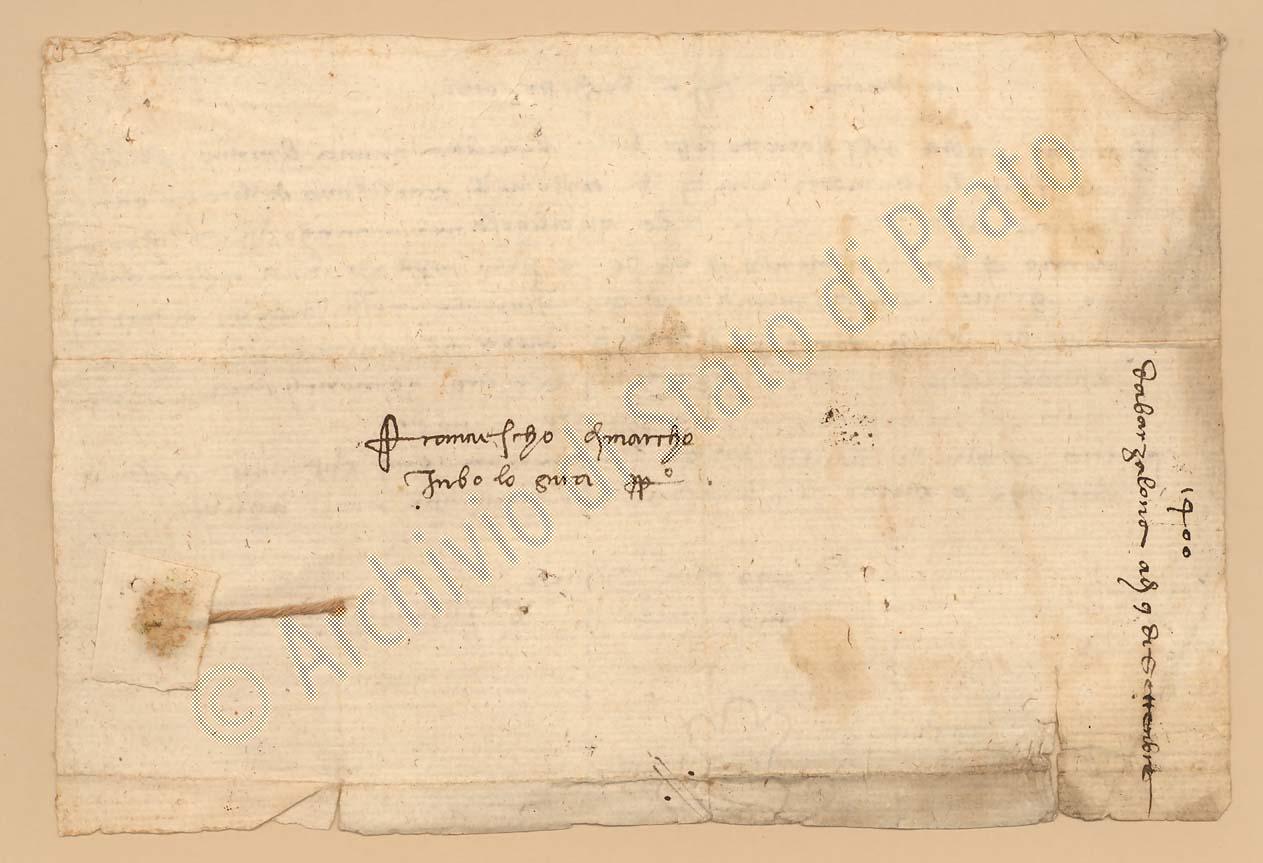 Francescho di marcho
In bolongnia propio
1400
da barzalona adi 9 di settenbre
© Archivio di Stato di Prato